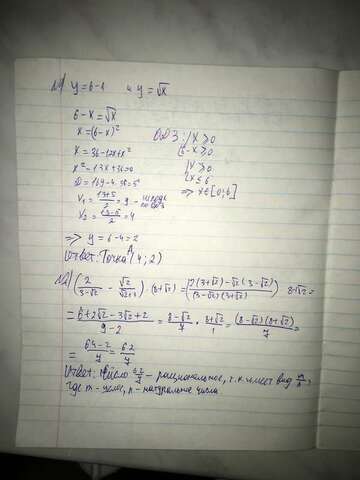 №1 y=6-x и y=√x
6-x=√x
x=(6-x)²
ОДЗ: {x≥0
{6-x≥0
x=36-12x+x²
x²-13x+36=0
{x≥0
{x≤6
D=169-4·36=5²
=> x∈[0;6]
x₁=(13+5)/2=9 -
x₂=(13-5)/2=4
=> y=6-4=2
Ответ: Точка A(4;2)
№2) (2/(3-√2) - √2/(√2+3))·(8+√2)=(2(3+√2)-√2(3-√2))/((3-√2)(3+√2)) · 8+√2=
=(6+2√2-3√2+2)/(9-2)=(8-√2)/7·(8+√2)/1=((8-√2)(8+√2))/7=
=(64-2)/7=62/7
Ответ: Число 62/7 - рациональное, т.к. имеет вид m/n,
где m - целое, n - натуральное числа